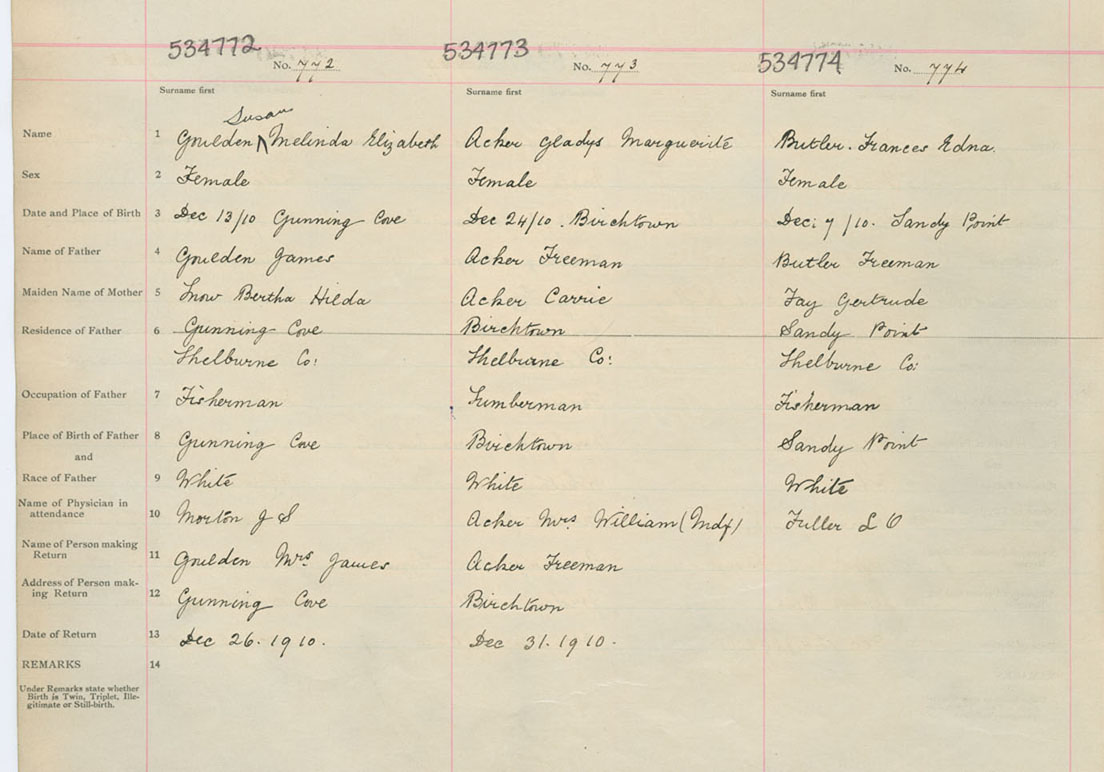 534772 No. 772 534773 No. 773 534774 No. 774
Surname first Surname first Surname first
Susan
Name 1 Goulden ⋀ Melinda Elizabeth Acker Gladys Marguerite Butler. Frances Edna.
Sex 2 Female Female Female
Date and Place of Birth 3 Dec 13/10 Gunning Cove Dec 24/10. Birchtown Dec: 7/10. Sandy Point
Name of Father 4 Goulden James Acker Freeman Butler Freeman
Maiden Name of Mother 5 Snow Bertha Hilda Acker Carrie Fay Gertrude
Residence of Father 6 Gunning Cove Birchtown Sandy Point
Shelburne Co: Shelburne Co: Shelburne Co:
Occupation of Father 7 Fisherman Lumberman Fisherman
Place of Birth of Father 8 Gunning Cove Birchtown Sandy Point
and
Race of Father 9 White White White
Name of Physician in
attendance 10 Morton J S Acker Mrs William (Mdf) Fuller L O
Name of Person making
Return 11 Goulden Mrs James Acker Freeman
Address of Person mak-
ing Return 12 Gunning Cove Birchtown
Date of Return 13 Dec 26. 1910. Dec 31. 1910.
REMARKS 14
Under Remarks state whether
Birth is Twin, Triplet, Ille-
gitimate or Still-birth.